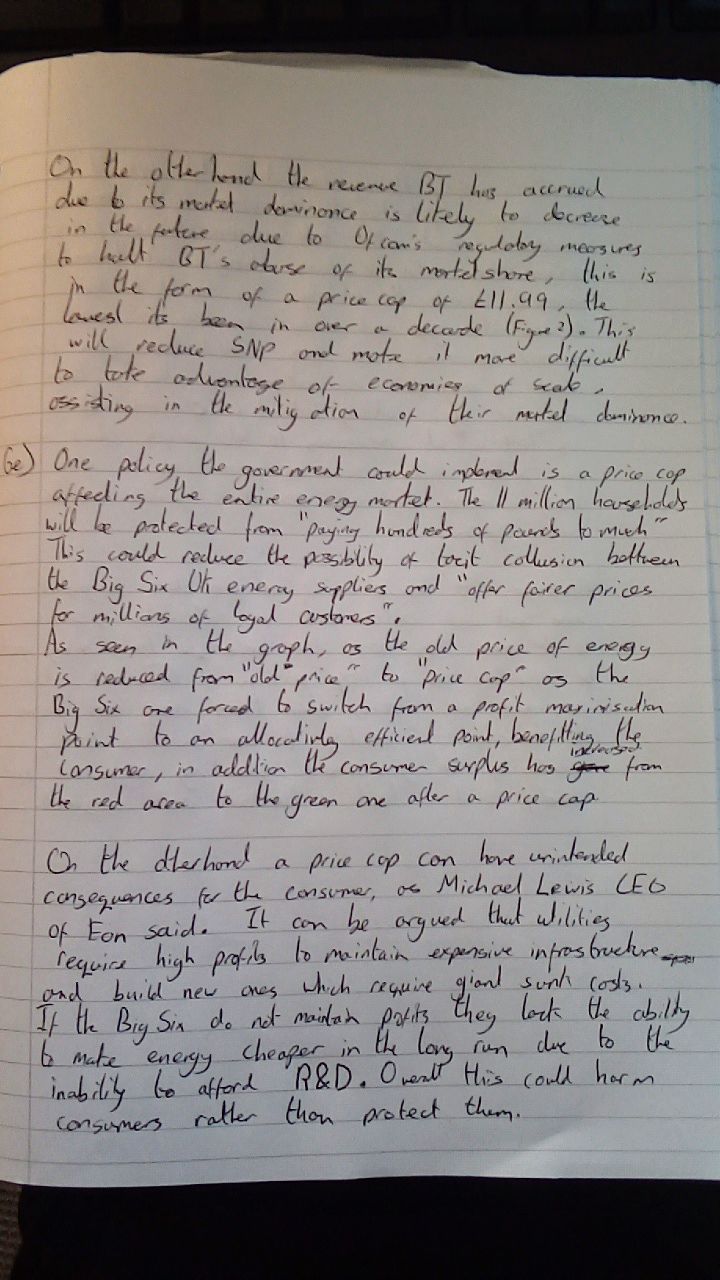 On the otherhand the revenue BT has accrued
due to its market dominance is likely to decrease
in the future due to Ofcom's regulatory measures
to halt BT's abuse of its market share, this is
in the form of a price cap of £11.99, the
lowest its been in over a decade (Figure 2). This
will reduce SNP and make it more difficult
to take advantage of economies of scale,
assisting in the mitigation of their market dominance.
6e) One policy the government could implement is a price cap
affecting the entire energy market. The 11 million households
will be protected from "paying hundreds of pounds to much"
This could reduce the possibility of tacit collusion bettween
the Big Six UK energy suppliers and "offer fairer prices
for millions of loyal customers".
As seen in the graph, as the old price of energy
is reduced from "old price" to "price cap" as the
Big Six are forced to switch from a profit maximisation
point to an allocativly efficient point, benefitting the
consumer, in addition the consumer surplus has increased from
the red area to the green one after a price cap
On the otherhand a price cap can have unintended
consequences for the consumer, as Michael Lewis CEO
of Eon said. It can be argued that utilities
require high profits to maintain expensive infrastructure
and build new ones which require giant sunk costs.
If the Big Six do not maintain profits they lack the ability
to make energy cheaper in the long run due to the
inability to afford R&D. Overall this could harm
consumers rather than protect them.